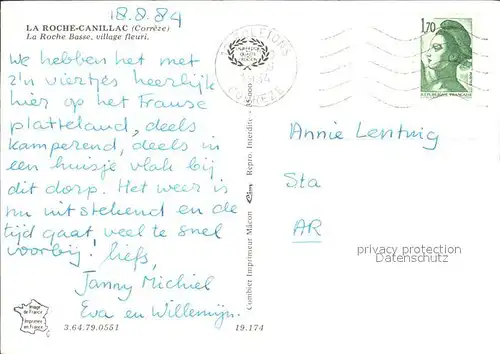 18.8.84
LA ROCHE-CANILLAC (Corrèze)
La Roche Basse, village fleuri.
We hebben het met
z'n viertjes heerlijk
hier op het Franse
platteland, deels
kamperend, deels in
een huisje vlak bij
dit dorp. Het weer is
nu uitstekend en de
tijd gaat veel te snel
voorbij. liefs,
Janny Michiel
Eva en Willemijn.
Image
de France
Imprimée
en France
3.64.79.0551
19.174
Combier Imprimeur Mâcon
Repro. Interdite
CORRÈZE
1,70
REPUBLIQUE FRANÇAISE
Annie Lentwig
Sta
AR
privacy protection
Datenschutz